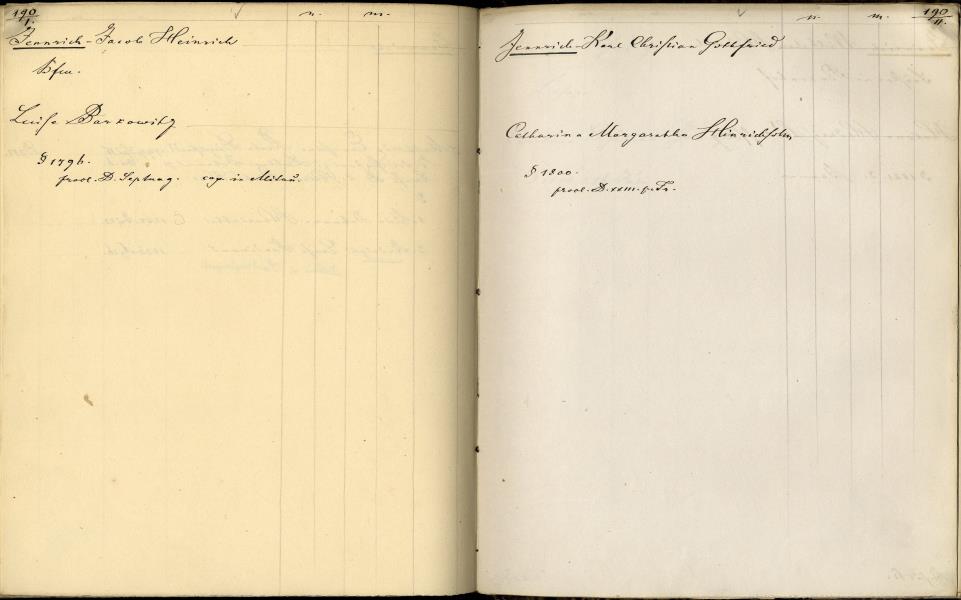 190
I.
n. m.
Jennrich - Jacob Heinrich
Bfm.
Luise Barkowitz
§ 1796.
procl. D. Septuag. cop. in Mitau
190
II.
n. m.
Jennrich - Karl Christian Gottfried
Catharina Margaretha Hinrichsen
§ 1800.
procl. D. XXIII. p. Tr.